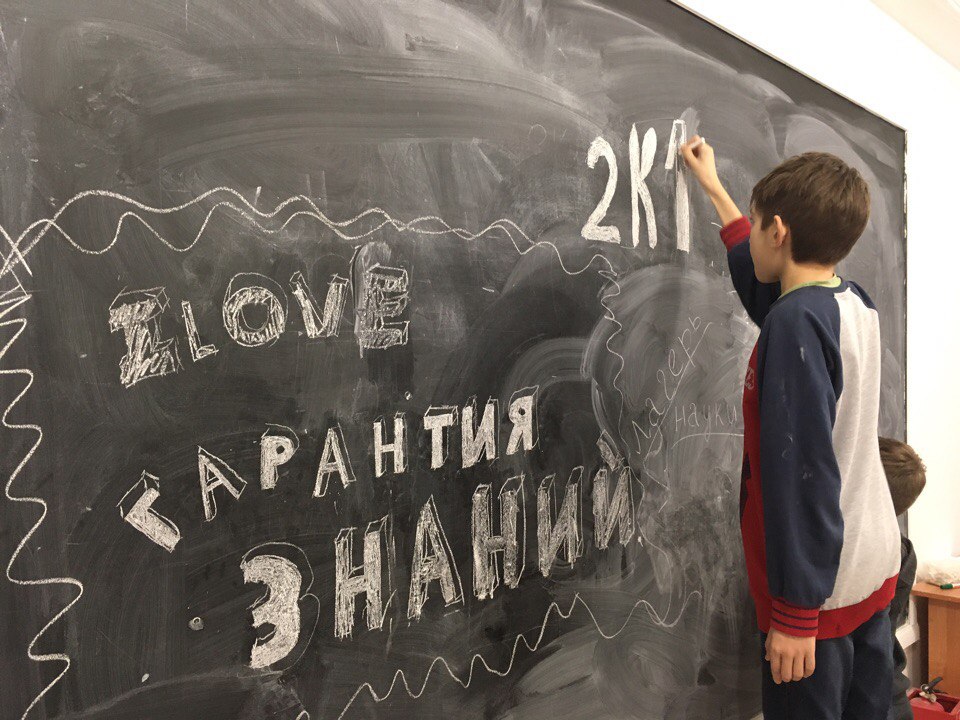 2K1
I LOVE
ГАРАНТИЯ
ЗНАНИЙ
Лагерь
науки